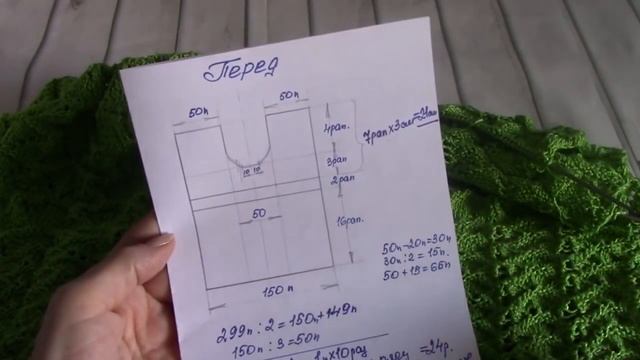 Перед
50п
50п
4рап.
7рап х 3см=21см
3рап
10 10
2рап
50
16рап.
150 п
50п-20п=30п
30п:2=15п.
50+15=65п
299п:2=150п+149п
150п:3=50п
1п х 10раз
=24р.